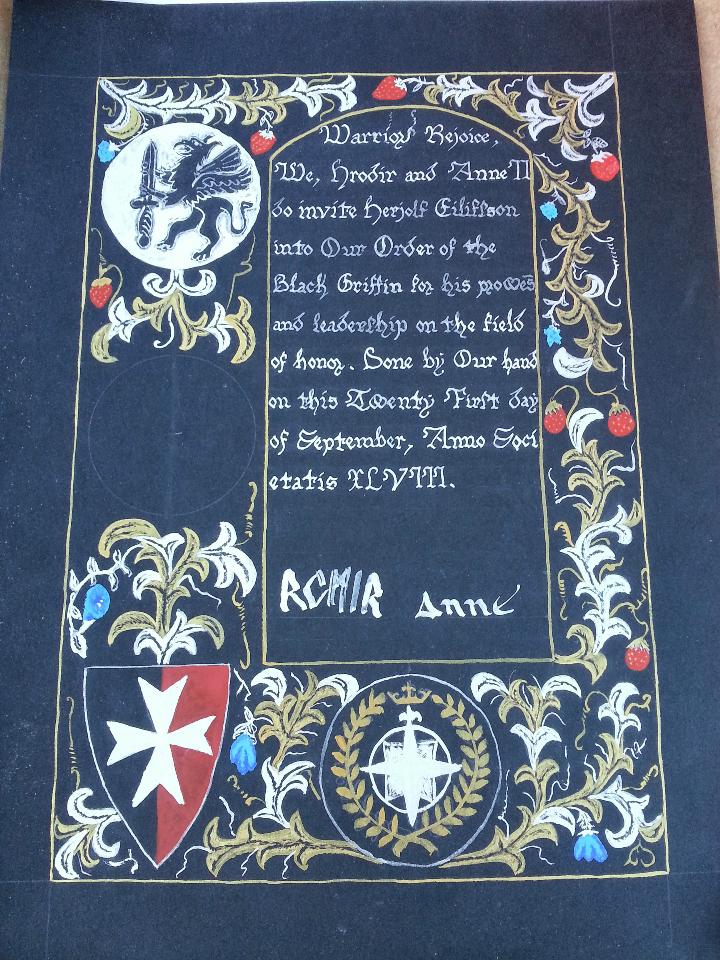 Warriors Rejoice,
We, Hrodir and Anne II
do invite Herjolf Eiliffson
into Our Order of the
Black Griffin for his prowess
and leadership on the field
of honor. Done by Our hand
on this Twenty First day
of September, Anno Soci
etatis XLVIII.
Anne